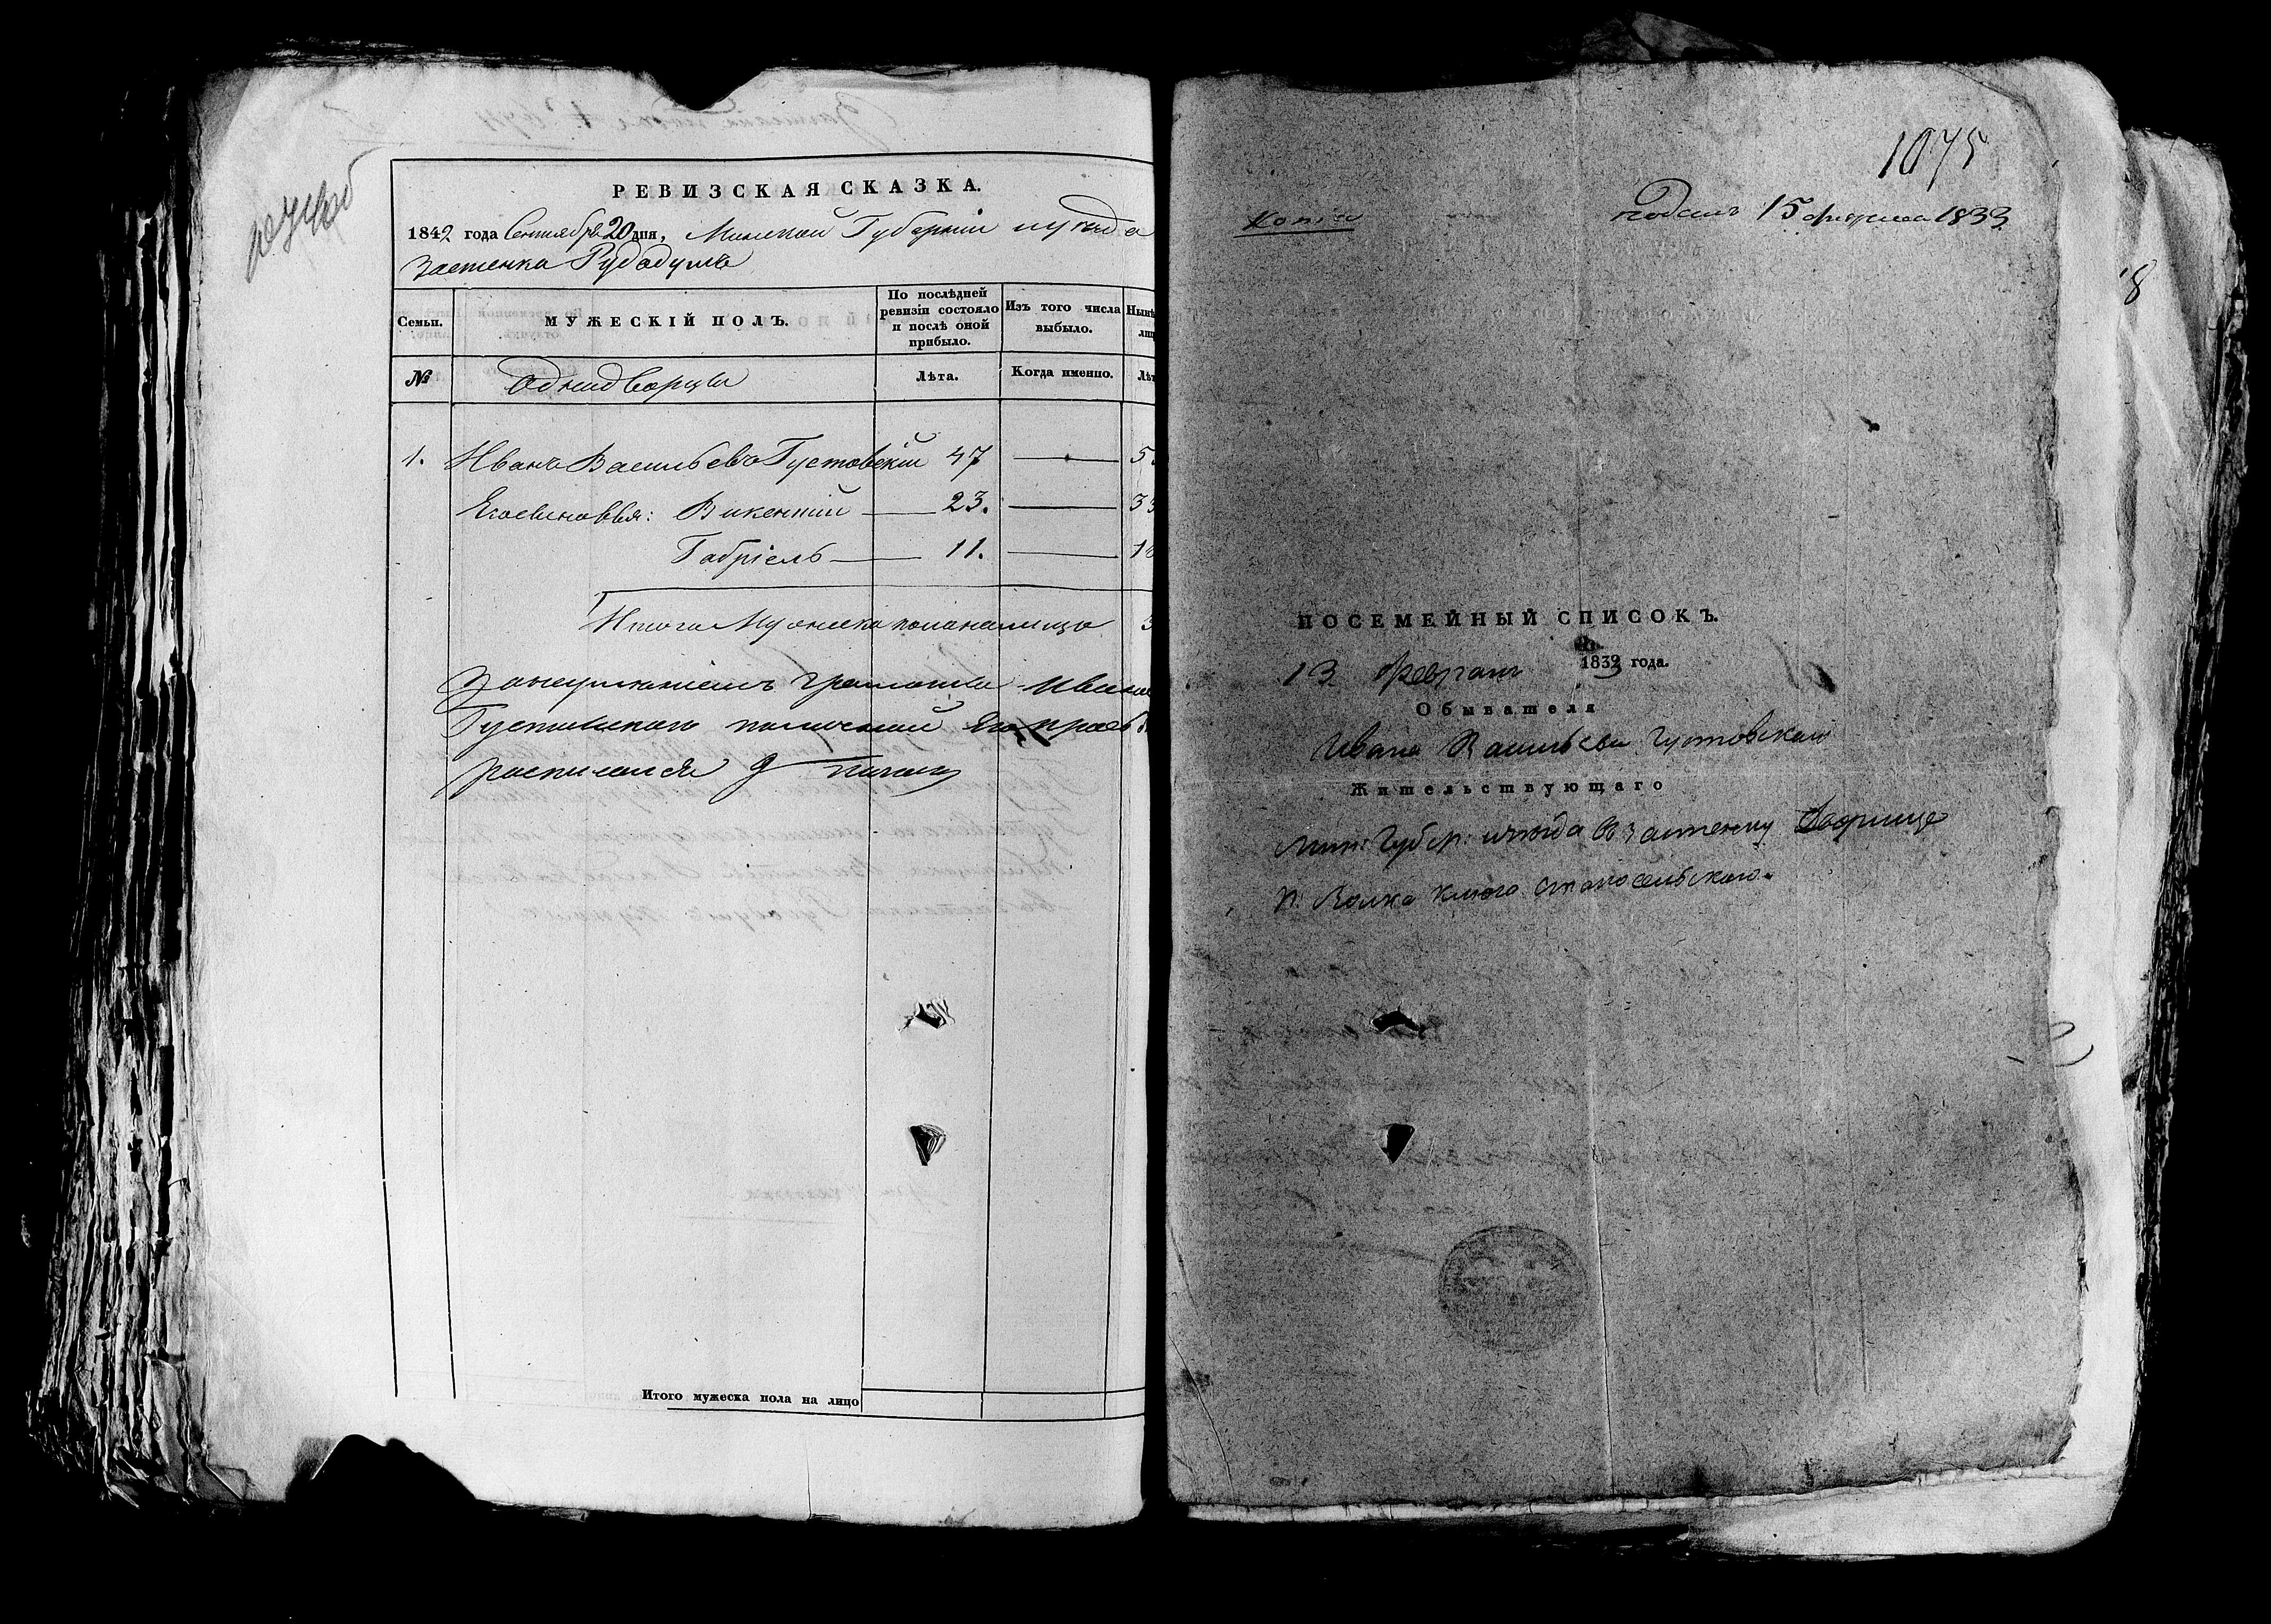 РЕВИЗСКАЯ СКАЗКА.
1842 года Сентября 20 дня, Минской Губерніи и уѣзда
Застенка Рудодумъ
Семьи.
МУЖЕСКІЙ ПОЛЪ.
По послѣдней ревизіи состояло и послѣ оной прибыло.
Изъ того числа выбыло.
Нынѣ
№
Однодворцы
Лѣта.
Когда именно.
Лѣт
1. Иванъ Васильевъ Густовскій 47 — 5
Его сыновья: Викентій — 23. — 33
Габріель — 11. — 1
Итого Мужеска пола на лицо 3
За неумѣніемъ грамоты Ивана
Густовскаго по личной его прозьб
росписался
Итого мужеска пола на лицо
1075
Копія
Поданъ 15 февраля 1833
ПОСЕМЕЙНЫЙ СПИСОКЪ.
13 февраля 1833 года.
Обывателя
Ивана Васильева Густовскаго
Жительствующаго
Мин: Губер: и уѣзда въ застенку Дворище
п. Волка ключа Старосельского.
8